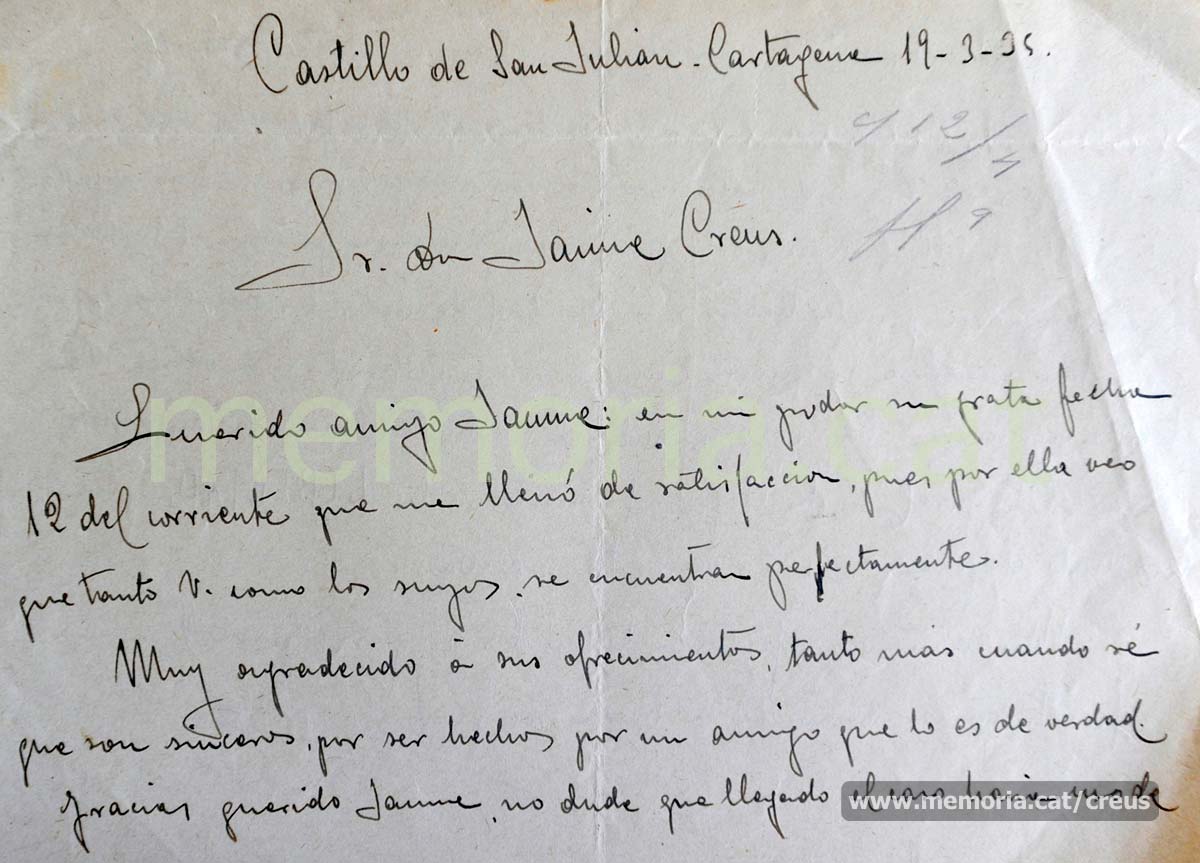 Castillo de San Julián - Cartagena 19-3-35.
12/4
Sr. don Jaime Creus.
memoria.cat
Querido amigo Jaume: en mi poder su grata fecha
12 del corriente que me llenó de satisfaccion, pues por ella veo
que tanto V. como los suyos, se encuentran perfectamente.
Muy agradecido á sus ofrecimientos, tanto mas cuando sé
que son sinceros, por ser hechos por un amigo que lo es de verdad.
Gracias querido Jaume, no dude que llegado el caso haria uso de
www.memoria.cat/creus